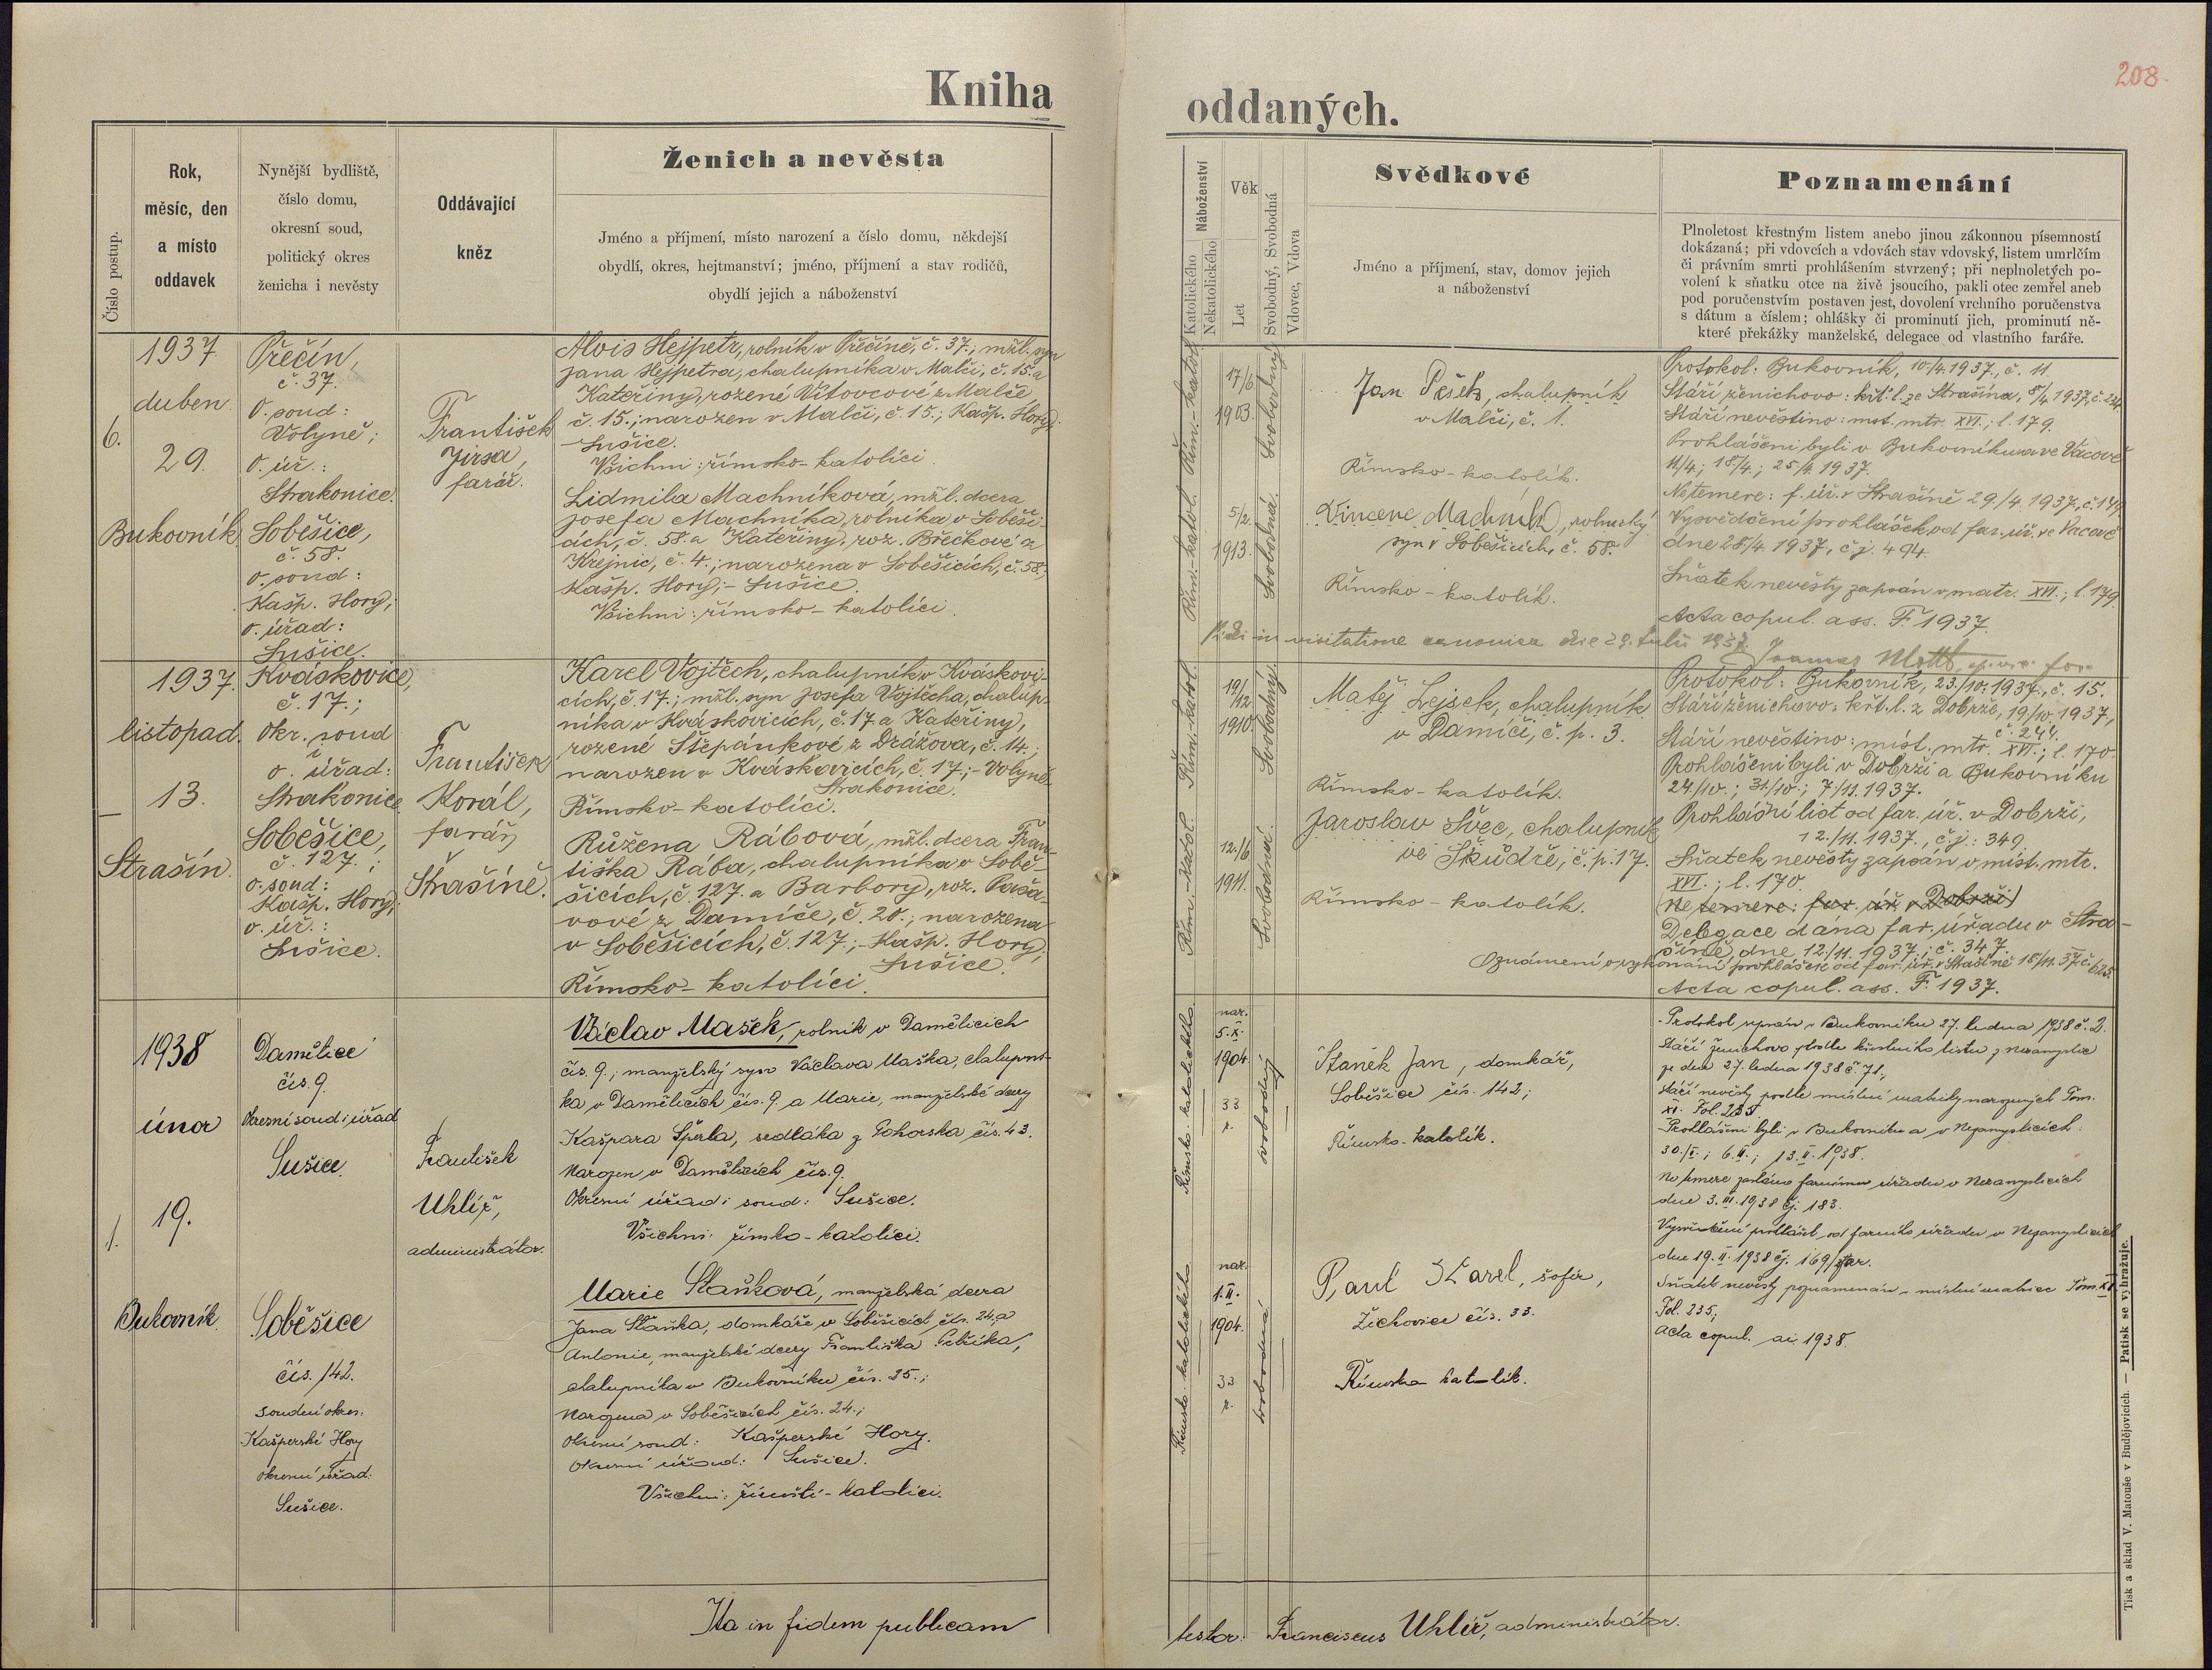 208.
Kniha
oddaných.
Číslo postup.
Rok,
měsíc, den
a místo
oddavek
Nynější bydliště,
číslo domu,
okresní soud,
politický okres
ženicha i nevěsty
Oddávající
kněz
Ženich a nevěsta
Jméno a příjmení, místo narození a číslo domu, někdejší
obydlí, okres, hejtmanství; jméno, příjmení a stav rodičů,
obydlí jejich a náboženství
Náboženství
Katolického
Nekatolického
Věk
Let
Svobodný, Svobodná
Vdovec, Vdova
Svědkové
Jméno a příjmení, stav, domov jejich
a náboženství
Poznamenání
Plnoletost křestným listem anebo jinou zákonnou písemností
dokázaná; při vdovcích a vdovách stav vdovský, listem umrlčím
či právním smrti prohlášením stvrzený; při neplnoletých po-
volení k sňatku otce na živě jsoucího, pakli otec zemřel aneb
pod poručenstvím postaven jest, dovolení vrchního poručenstva
s dátum a číslem; ohlášky či prominutí jich, prominutí ně-
které překážky manželské, delegace od vlastního faráře.
6.
1937
duben
29.
Bukovník
Přečín,
č. 37.
O. soud:
Volyně;
O. úř.:
Strakonice.
Soběšice,
č. 58.
o. soud:
Kašp. Hory;
o. úřad:
Sušice.
František
Jirsa,
farář.
Alois Hejpetr, rolník v Přečíně, č. 37.; mžl. syn
Jana Hejpetra, chalupníka v Malči, č. 15. a
Kateřiny, rozené Vítovcové z Malče
č. 15.; narozen v Malči, č. 15.; Kašp. Hory;
- Sušice.
Všichni: římsko-katolíci.
Lidmila Machníková, mžl. dcera
Josefa Machníka, rolníka v Soběši-
cích, č. 58. a Kateřiny, roz. Břečkové z
Krejnic, č. 4.; narozena v Soběšicích, č. 58.,
Kašp. Hory; - Sušice.
Všichni: římsko-katolíci.
Řím.-katol.
17/6.
1903.
Svobodný
Řím.-katol.
5/2.
1913.
Svobodná.
Jan Pešek, chalupník
v Malči, č. 1.
Římsko-katolík.
Vincenc Machník, rolnický
syn v Soběšicích, č. 58.
Římsko-katolík.
Protokol: Bukovník, 10./4. 1937., č. 11.
Stáří ženichovo: křt. l. ze Strašína, 8/4. 1937, č. 234.
Stáří nevěstino: mst. mtr. XVI.; l. 179.
Prohlášeni byli v Bukovníku a ve Vacově
11/4; 18/4.; 25/4. 1937.
Netemere: f. úř. v Strašíně 29./4. 1937., č. 149.
Vysvědčení prohlášek od far. úř. ve Vacově
dne 25/4. 1937, č. j. 494.
Sňatek nevěsty zapsán v matr. XVI.; l. 179.
Acta copul. ass. F. 1937.
Vidi in visitatione canonica die 29. Julii 1937.
1937.
listopad.
13.
Strašín.
Kváskovice,
č. 17.;
Okr. soud
i
o. úřad:
Strakonice
Soběšice,
č. 127.;
o. soud:
Kašp. Hory;
o. úř.:
Sušice.
František
Korál,
farář v
Strašíně.
Karel Vojtěch, chalupník v Kváskovi-
cích, č. 17.; mžl. syn Josefa Vojtěcha, chalup-
níka v Kváskovicích, č. 17 a Kateřiny,
rozené Štěpánkové z Drážova, č. 14.;
narozen v Kváskovicích, č. 17.; - Volyně
Strakonice.
Římsko-katolíci.
Růžena Rábová, mžl. dcera Fran-
tiška Rába, chalupníka v Sobě-
šicích, č. 127. a Barbory, roz. Paša-
vové z Damíče, č. 20.; narozena
v Soběšicích, č. 127.; - Kašp. Hory,
Sušice.
Římsko-katolíci.
Řím.-katol.
19/12
1910.
Svobodný.
Řím.-katol.
12./6
1911.
Svobodná.
Matěj Lejsek, chalupník
v Damíči, č. p. 3.
Římsko-katolík.
Jaroslav Švec, chalupník
ve Škůdře, č. p. 17.
Římsko-katolík.
Protokol: Bukovník, 23./10. 1937., č. 15.
Stáří ženichovo: křt. l. z Dobrže, 19/10. 1937,
č. 244.
Stáří nevěstino: míst. mtr. XVI.; l. 170.
Prohlášeni byli v Dobrži a Bukovníku
24./10.; 31/10.; 7./11. 1937.
Prohlášní list od far. úř. v Dobrži,
12./11. 1937., č. j.: 349.
Sňatek nevěsty zapsán v míst. mtr.
XVI.; l. 170.
(Netemere: far. úř. v Dobrži)
Delegace dána far. úřadu v Stra-
šíně, dne 12./11. 1937.; č. 347.
Oznámení o vykonání prohlášek od far. úř. v Strašíně 15/11. 37 č. 625.
Acta copul. ass. F. 1937.
1.
1938
únor
19.
Bukovník.
Damětice
čís. 9.
Okresní soud i úřad
Sušice.
Soběšice
čís. 142.
soudní okres:
Kašperské Hory
okresní úřad:
Sušice.
František
Uhlíř,
administrátor.
Václav Mašek, rolník v Daměticích
čís. 9.; manželský syn Václava Maška, chalupní-
ka v Daměticích čís. 9. a Marie, manželské dcery
Kašpara Šperla, sedláka z Pohorska, čís. 43.
Narozen v Daměticích čís. 9.
Okresní úřad i soud: Sušice.
Všichni: římsko-katolíci.
Marie Staňková, manželská dcera
Jana Staňka, domkáře v Soběšicích čís. 24. a
Antonie, manželské dcery Františka
chalupníka v Bukovníku čís. 25.;
Narozena v Soběšicích čís. 24.;
Okresní soud: Kašperské Hory.
Okresní úřad: Sušice.
Všichni: římští-katolíci.
Římsko-katolického
nar.
5. X.
1904.
33
r.
svobodný
Římsko-katolického
nar.
1. II.
1904.
33
r.
svobodná
Staněk Jan, domkář,
Soběšice čís. 142;
Římsko-katolík.
Paul Karel, šofér,
Žichovice čís. 33.
Římsko katolík.
Protokol sepsán v Bukovníku 27. ledna 1938 č. 2.
Stáří ženichovo podle křestního listu z Nezamyslic
ze dne 27. ledna 1938 č. 71.;
Stáří nevěsty podle místní matriky narozených Tom.
XV. Fol. 235
Prohlášeni byli v Bukovníku a v Nezamyslicích:
30./I.; 6. II.; 13. II. 1938.
Ne temere zasláno farnímu úřadu v Nezamyslicích
dne 3. III. 1938 čj. 183.
Vysvědčení prohlášek od farního úřadu v Nezamyslicích
dne 19. II. 1938 čj. 169/
Sňatek nevěsty poznamenán v místní matrice Tom. XV.
Fol. 235;
Acta copul. ai 1938.
Ita in fidem publicam
testor: Franciscus Uhlíř, administrátor.
Tisk a sklad V. Matouše v Budějovicích. — Patisk se vyhražuje.